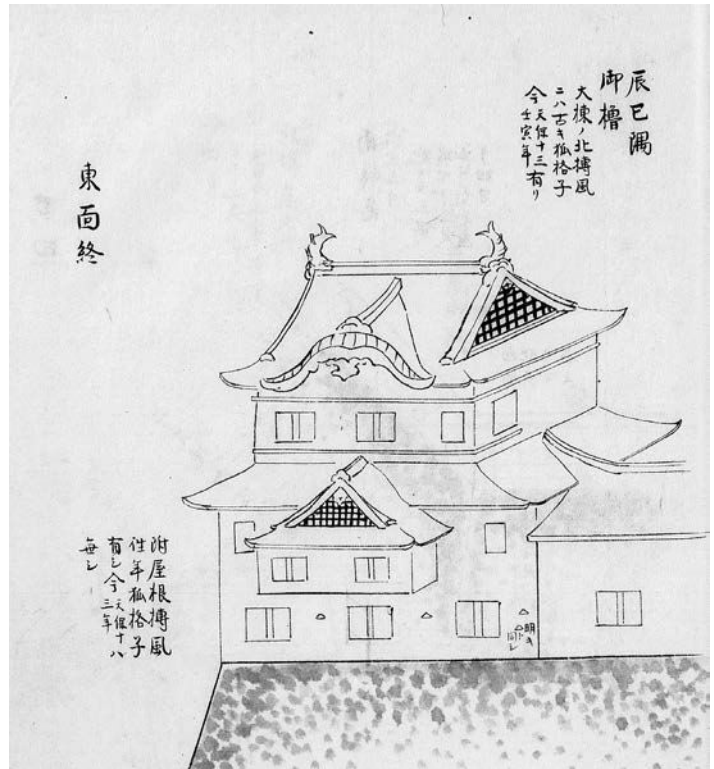 辰巳隅
御櫓
大棟ノ北搏風
ニハ古キ狐格子
今天保十三壬寅年有リ
東面終
附屋根搏風
往年狐格子
有シ今天保十三年ハ
無シ